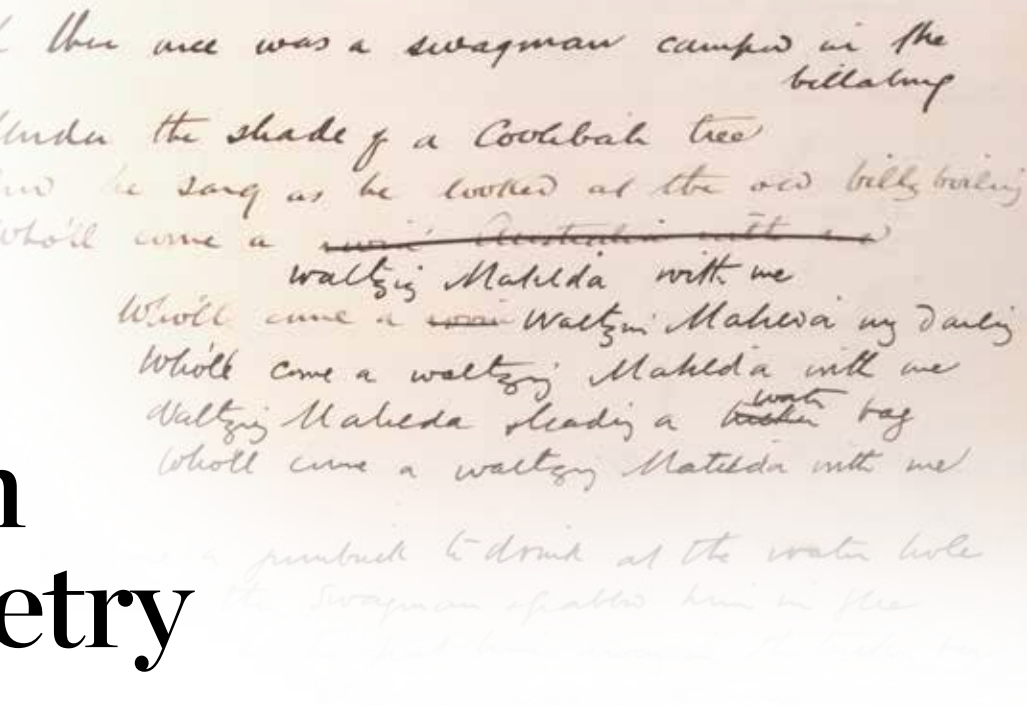 there once was a swagman camped in the
billabong
Under the shade of a Coolibah tree
And he sang as he looked at the old billy boiling
Who'll come a
waltzing Matilda with me
Who'll come a Waltzing Matilda my darling
Who'll come a waltzing Matilda with me
Waltzing Matilda leading a water bag
Who'll come a waltzing Matilda with me
a jumbuck to drink at the water hole
the Swagman grabbed him in glee
n
etry